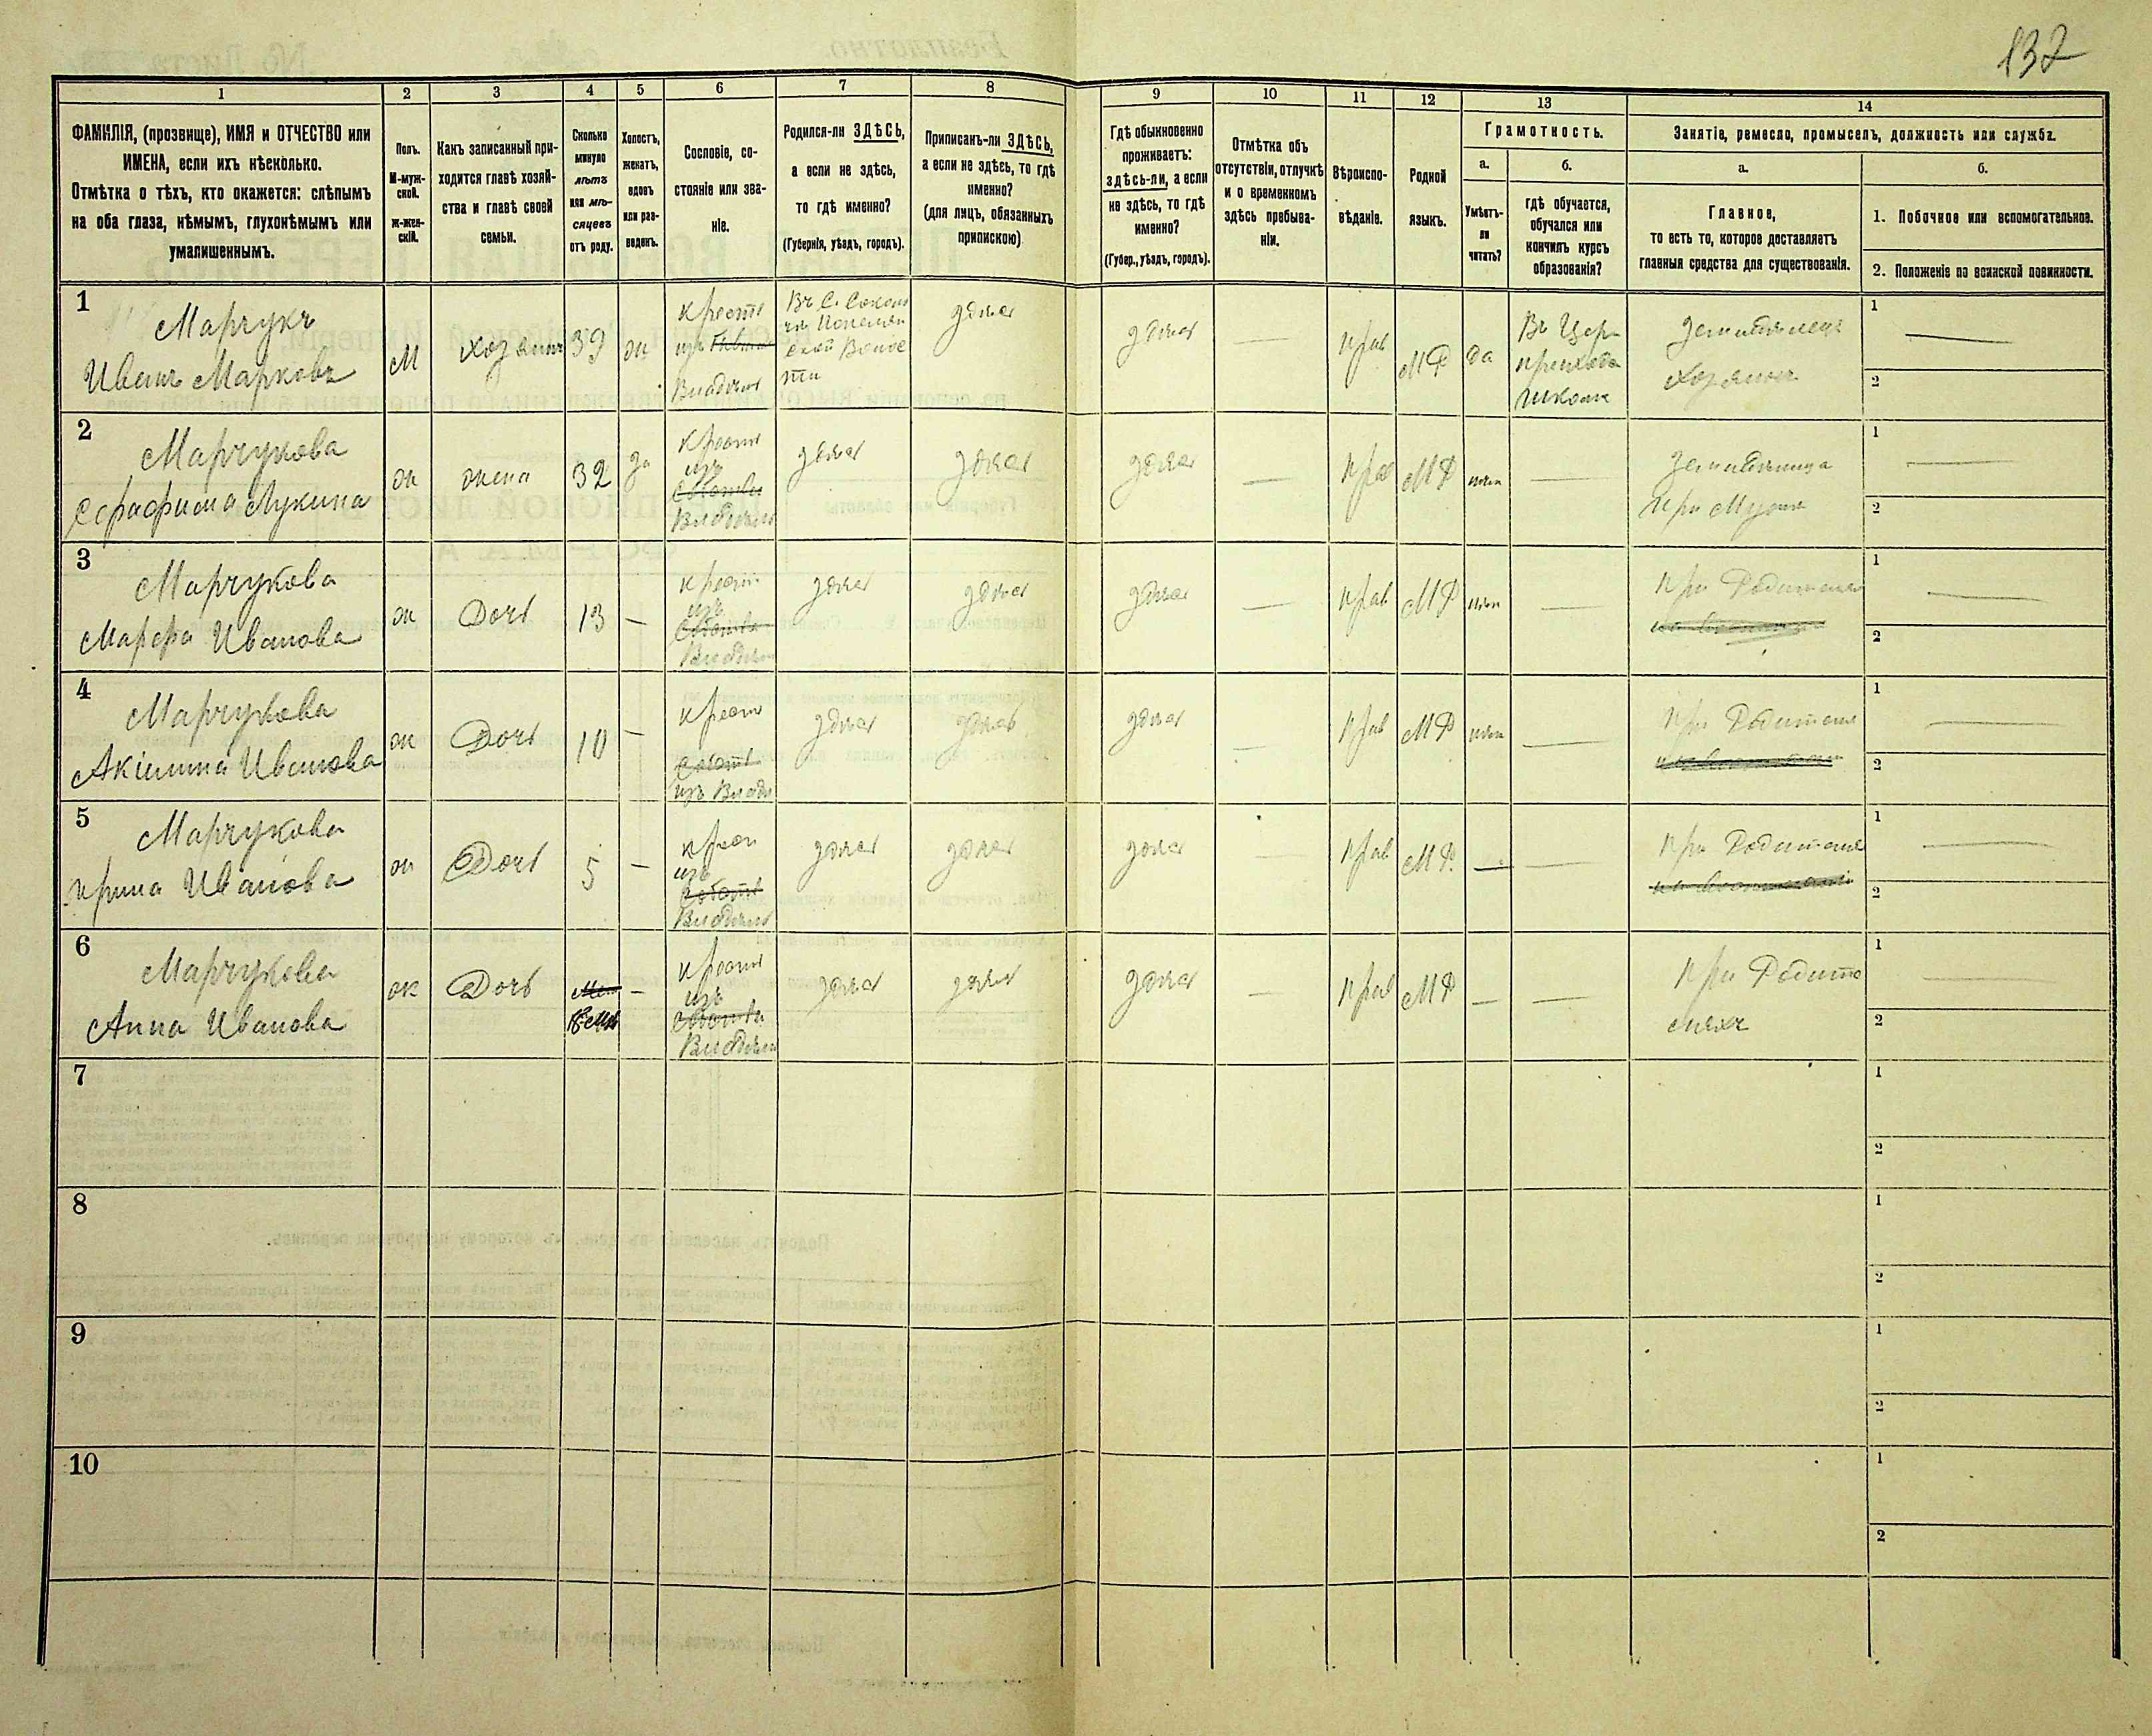 132
1
2
3
4
5
6
7
8
9
10
11
12
13
14
ФАМИЛІЯ, (прозвище), ИМЯ и ОТЧЕСТВО или
ИМЕНА, если ихъ нѣсколько.
Отмѣтка о тѣхъ, кто окажется: слѣпымъ
на оба глаза, нѣмымъ, глухонѣмымъ или
умалишеннымъ.
Полъ.
М-муж-
ской.
ж-жен-
скій.
Какъ записанный при-
ходится главѣ хозяй-
ства и главѣ своей
семьи.
Сколько
минуло
лѣтъ
или мѣ-
сяцевъ
отъ роду.
Холостъ,
женатъ,
вдовъ
или раз-
веденъ.
Сословіе, со-
стояніе или зва-
ніе.
Родился-ли ЗДѢСЬ,
а если не здѣсь,
то гдѣ именно?
(Губернія, уѣздъ, городъ).
Приписанъ-ли ЗДѢСЬ,
а если не здѣсь, то гдѣ
именно?
(для лицъ, обязанныхъ
припискою)
Гдѣ обыкновенно
проживаетъ:
здѣсь-ли, а если
не здѣсь, то гдѣ
именно?
(Губер., уѣздъ, городъ).
Отмѣтка объ
отсутствіи, отлучкѣ
и о временномъ
здѣсь пребыва-
ніи.
Вѣроиспо-
вѣданіе.
Родной
языкъ.
Грамотность.
а.
Умѣетъ-
ли
читать?
б.
гдѣ обучается,
обучался или
кончилъ курсъ
образованія?
Занятіе, ремесло, промыселъ, должность или служба.
а.
Главное,
то есть то, которое доставляетъ
главныя средства для существованія.
б.
1. Побочное или вспомогательное.
2. Положеніе по воинской повинности.
1
Марчукъ
Иванъ Марковъ
М
хозяинъ
39
ж
крест
изъ
Владѣл
здѣсь
здѣсь
прав
МР
да
Въ Церк
приходс
школѣ
Земледѣлецъ
хозяинъ
1
2
2
Марчукова
Серафима Лукина
ж
жена
32
за
крест
изъ
Владѣл
здѣсь
здѣсь
здѣсь
—
прав
МР
—
при Мужѣ
1
2
3
Марчукова
Марфа Иванова
ж
Дочь
13
—
крест
изъ
Владѣл
здѣсь
здѣсь
здѣсь
—
прав
МР
—
при Родителя
1
2
4
Марчукова
Акилина Иванова
ж
Дочь
10
—
крест
изъ Влад
здѣсь
здѣсь
здѣсь
—
прав
МР
—
при Родителя
1
2
5
Марчукова
Ирина Иванова
ж
Дочь
5
—
крест
изъ
Владѣл
здѣсь
здѣсь
здѣсь
—
прав
МР.
—
—
при Родителя
1
2
6
Марчукова
Анна Иванова
ж
Дочь
—
крест
изъ
Владѣл
здѣсь
здѣсь
здѣсь
—
прав
МР
—
—
при Родите
ляхъ
1
2
7
1
2
8
1
2
9
1
2
10
1
2